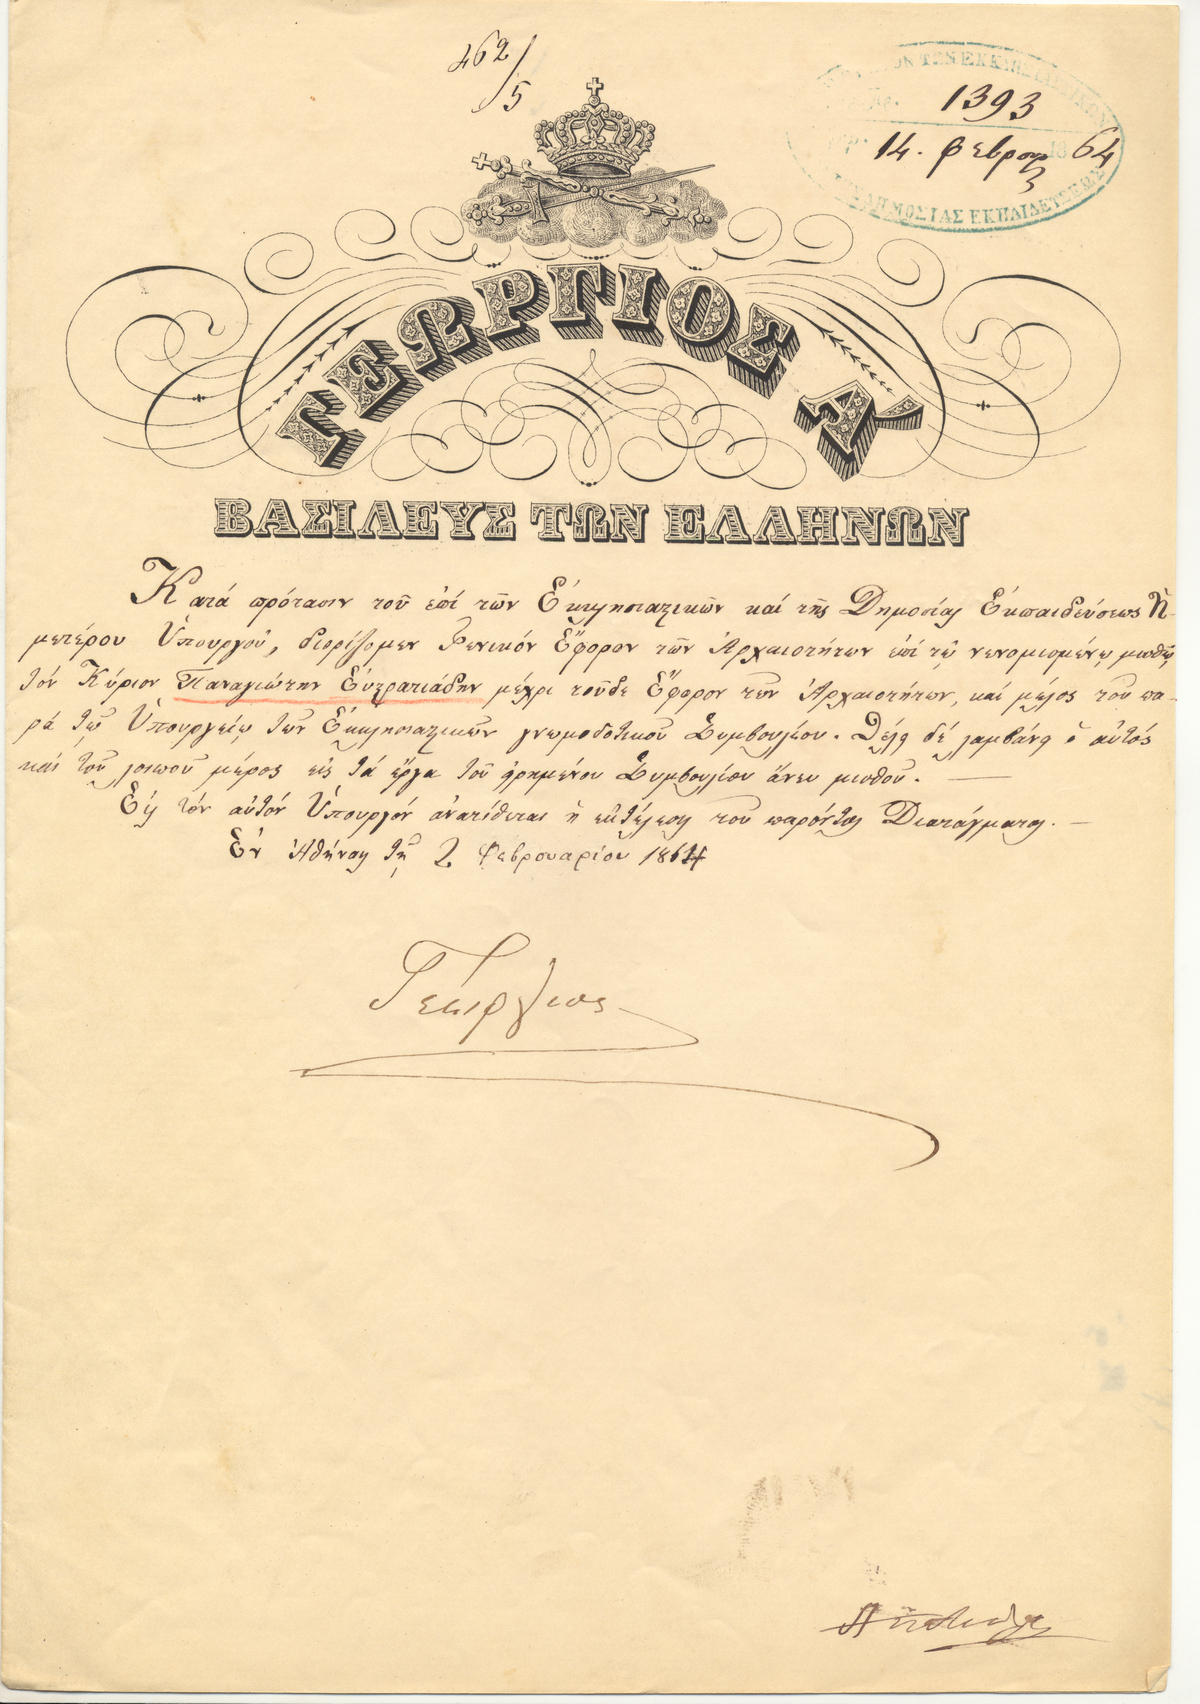 462/5
ΤΩΝ ΕΚΚΛΗΣΙΑΣΤΙΚΩΝ
1393
14. Φεβρουαρ 1864
ΔΗΜΟΣΙΑΣ ΕΚΠΑΙΔΕΥΣΕΩΣ
ΓΕΩΡΓΙΟΣ Α'
ΒΑΣΙΛΕΥΣ ΤΩΝ ΕΛΛΗΝΩΝ
Κατά πρότασιν τοῦ ἐπί τῶν Ἐκκλησιαστικῶν καί τῆς Δημοσίας Ἐκπαιδεύσεως Ἡ-
μετέρου Ὑπουργοῦ, διορίζομεν Γενικόν Ἔφορον τῶν Ἀρχαιοτήτων ἐπί τῷ νενομισμένῳ μισθῷ
τόν Κύριον Παναγιώτην Εὐστρατιάδην μέχρι τοῦδε Ἔφορον τῶν Ἀρχαιοτήτων, καί μέλος τοῦ πα-
ρά τῷ Ὑπουργείῳ τῶν Ἐκκλησιαστικῶν γνωμοδοτικοῦ Συμβουλίου. Θέλει δέ λαμβάνει ὁ αὐτός
καί τοῦ λοιποῦ μέρος εἰς τά ἔργα τοῦ εἰρημένου Συμβουλίου ἄνευ μισθοῦ. —
Εἰς τόν αὐτόν Ὑπουργόν ἀνατίθεται ἡ ἐκτέλεσις τοῦ παρόντος Διατάγματος. —
Ἐν Ἀθήναις τῇ 2 Φεβρουαρίου 1864
Γεώργιος